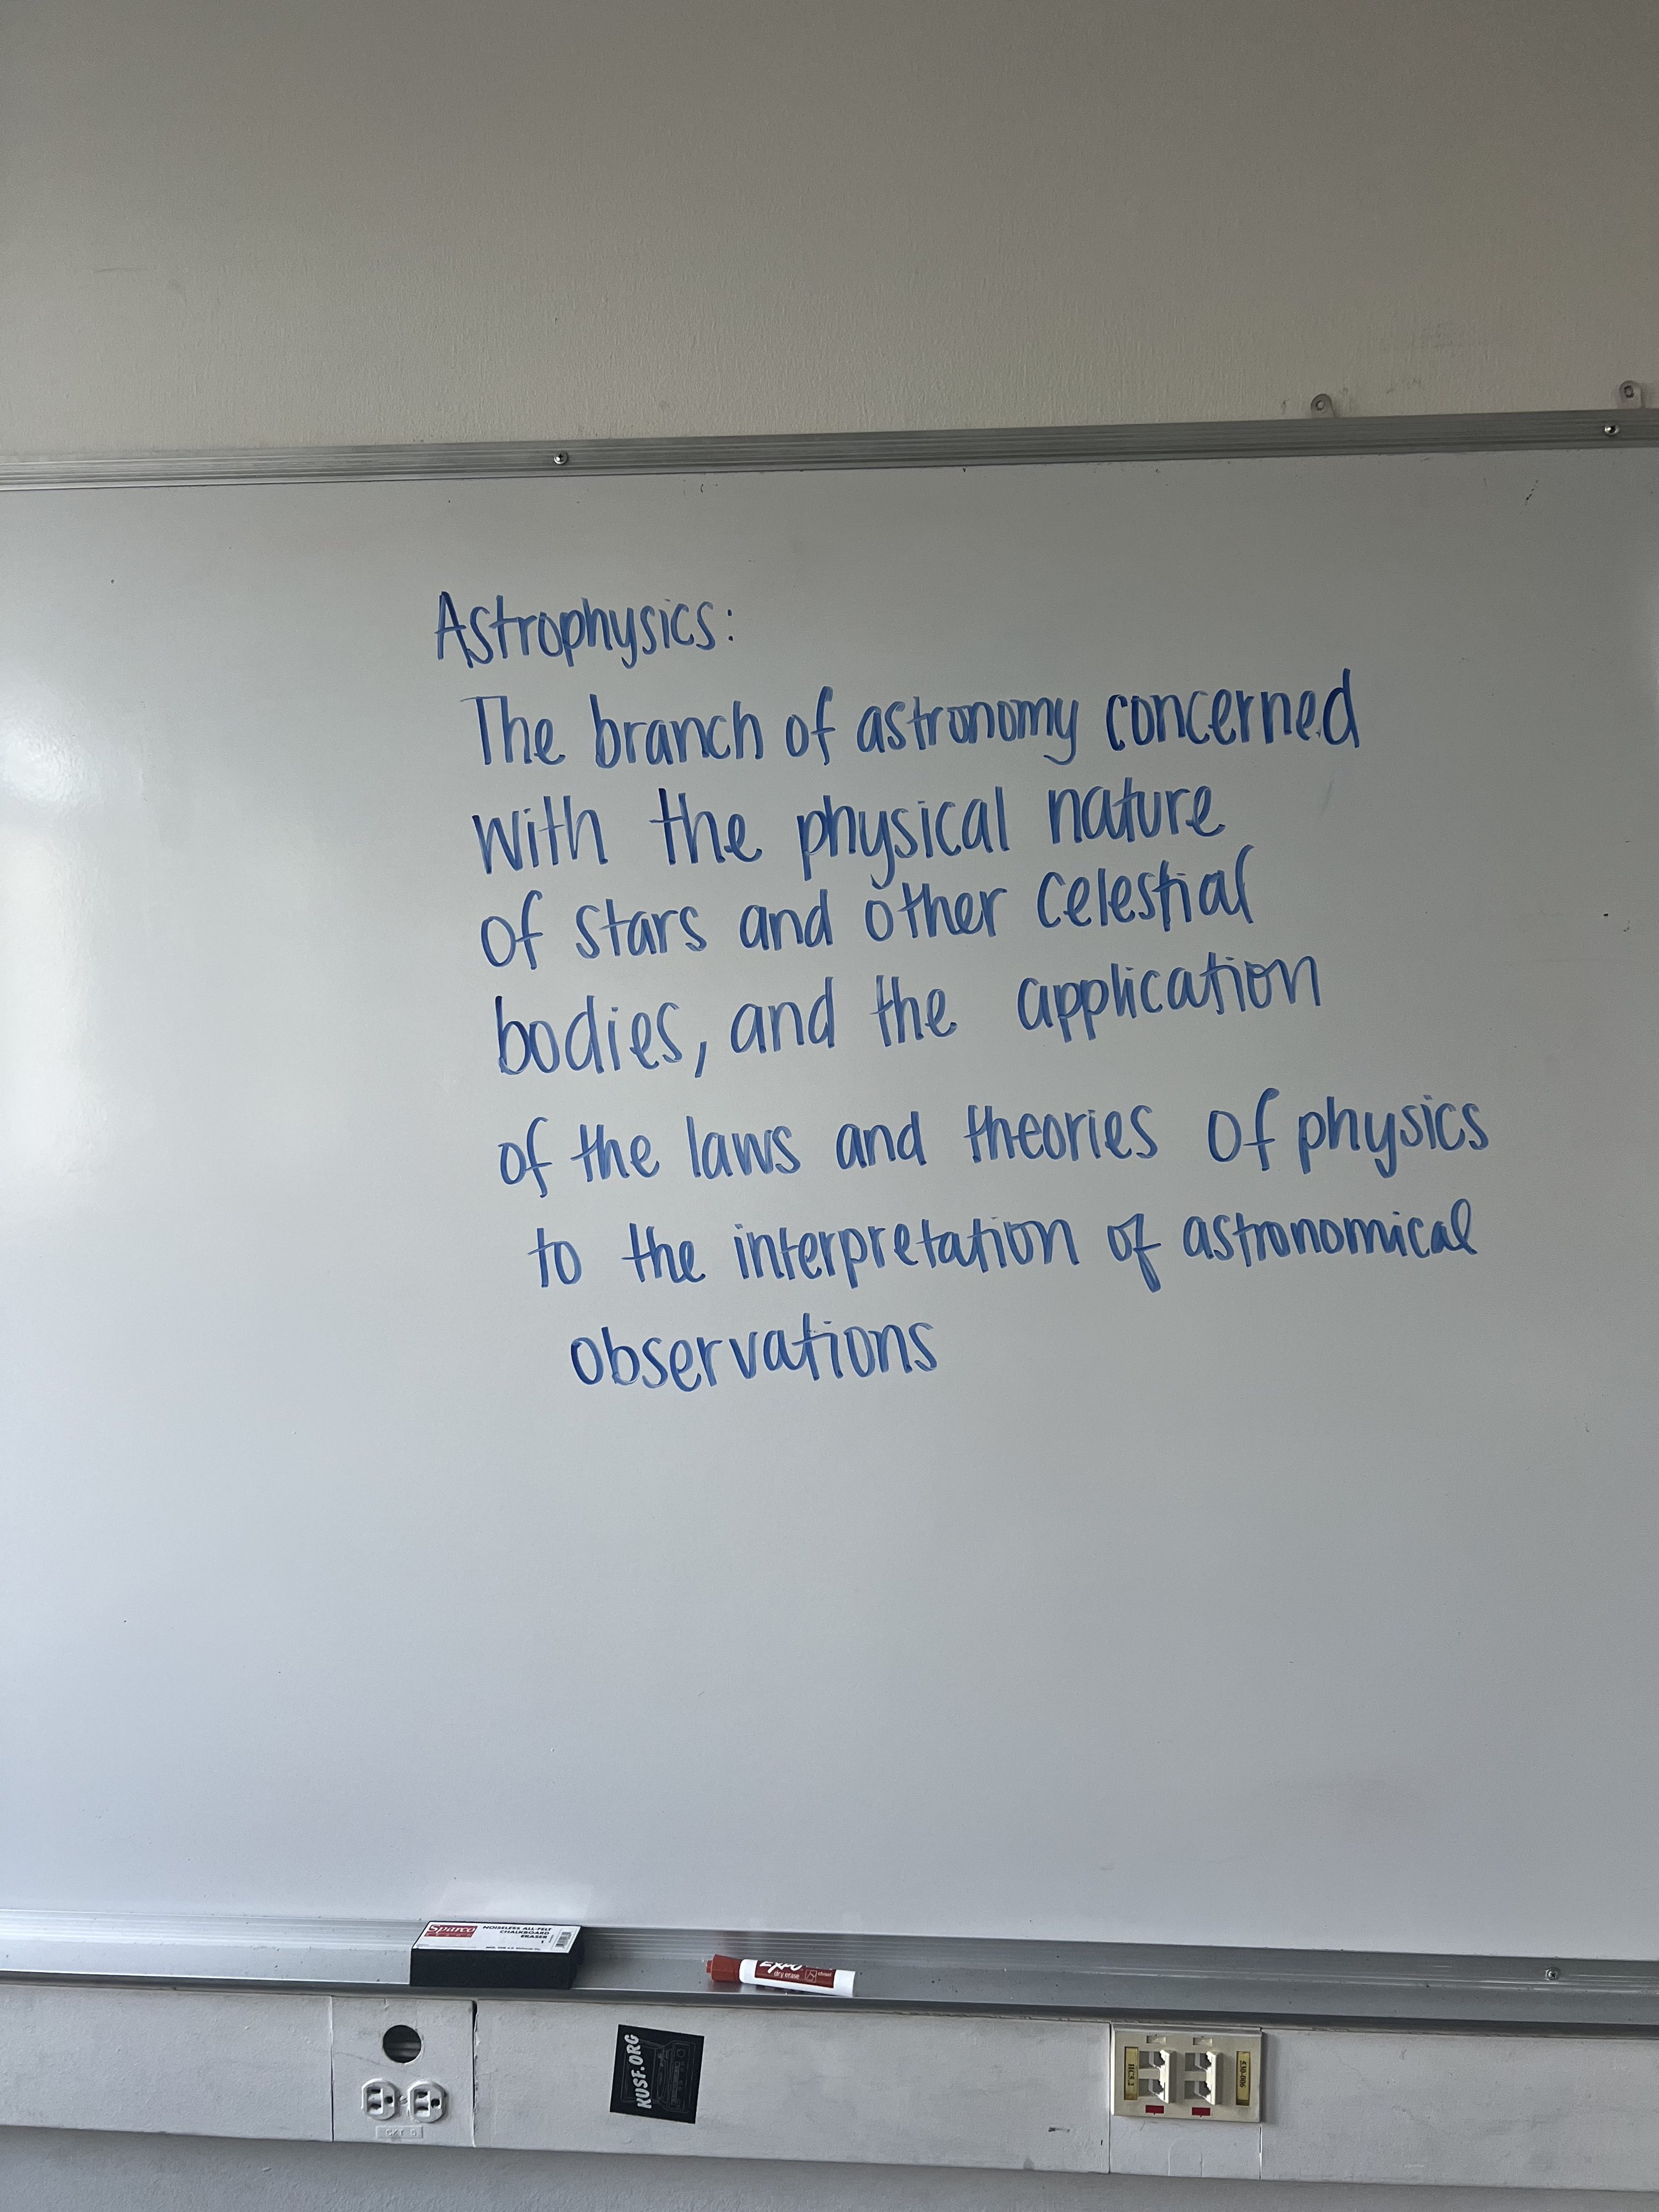 Astrophysics:
The branch of astronomy concerned
with the physical nature
of stars and other celestial
bodies, and the application
of the laws and theories of physics
to the interpretation of astronomical
observations
Sparco
NOISELESS ALL-FELT
CHALKBOARD
ERASER
EXPO
dry erase
KUSF.ORG